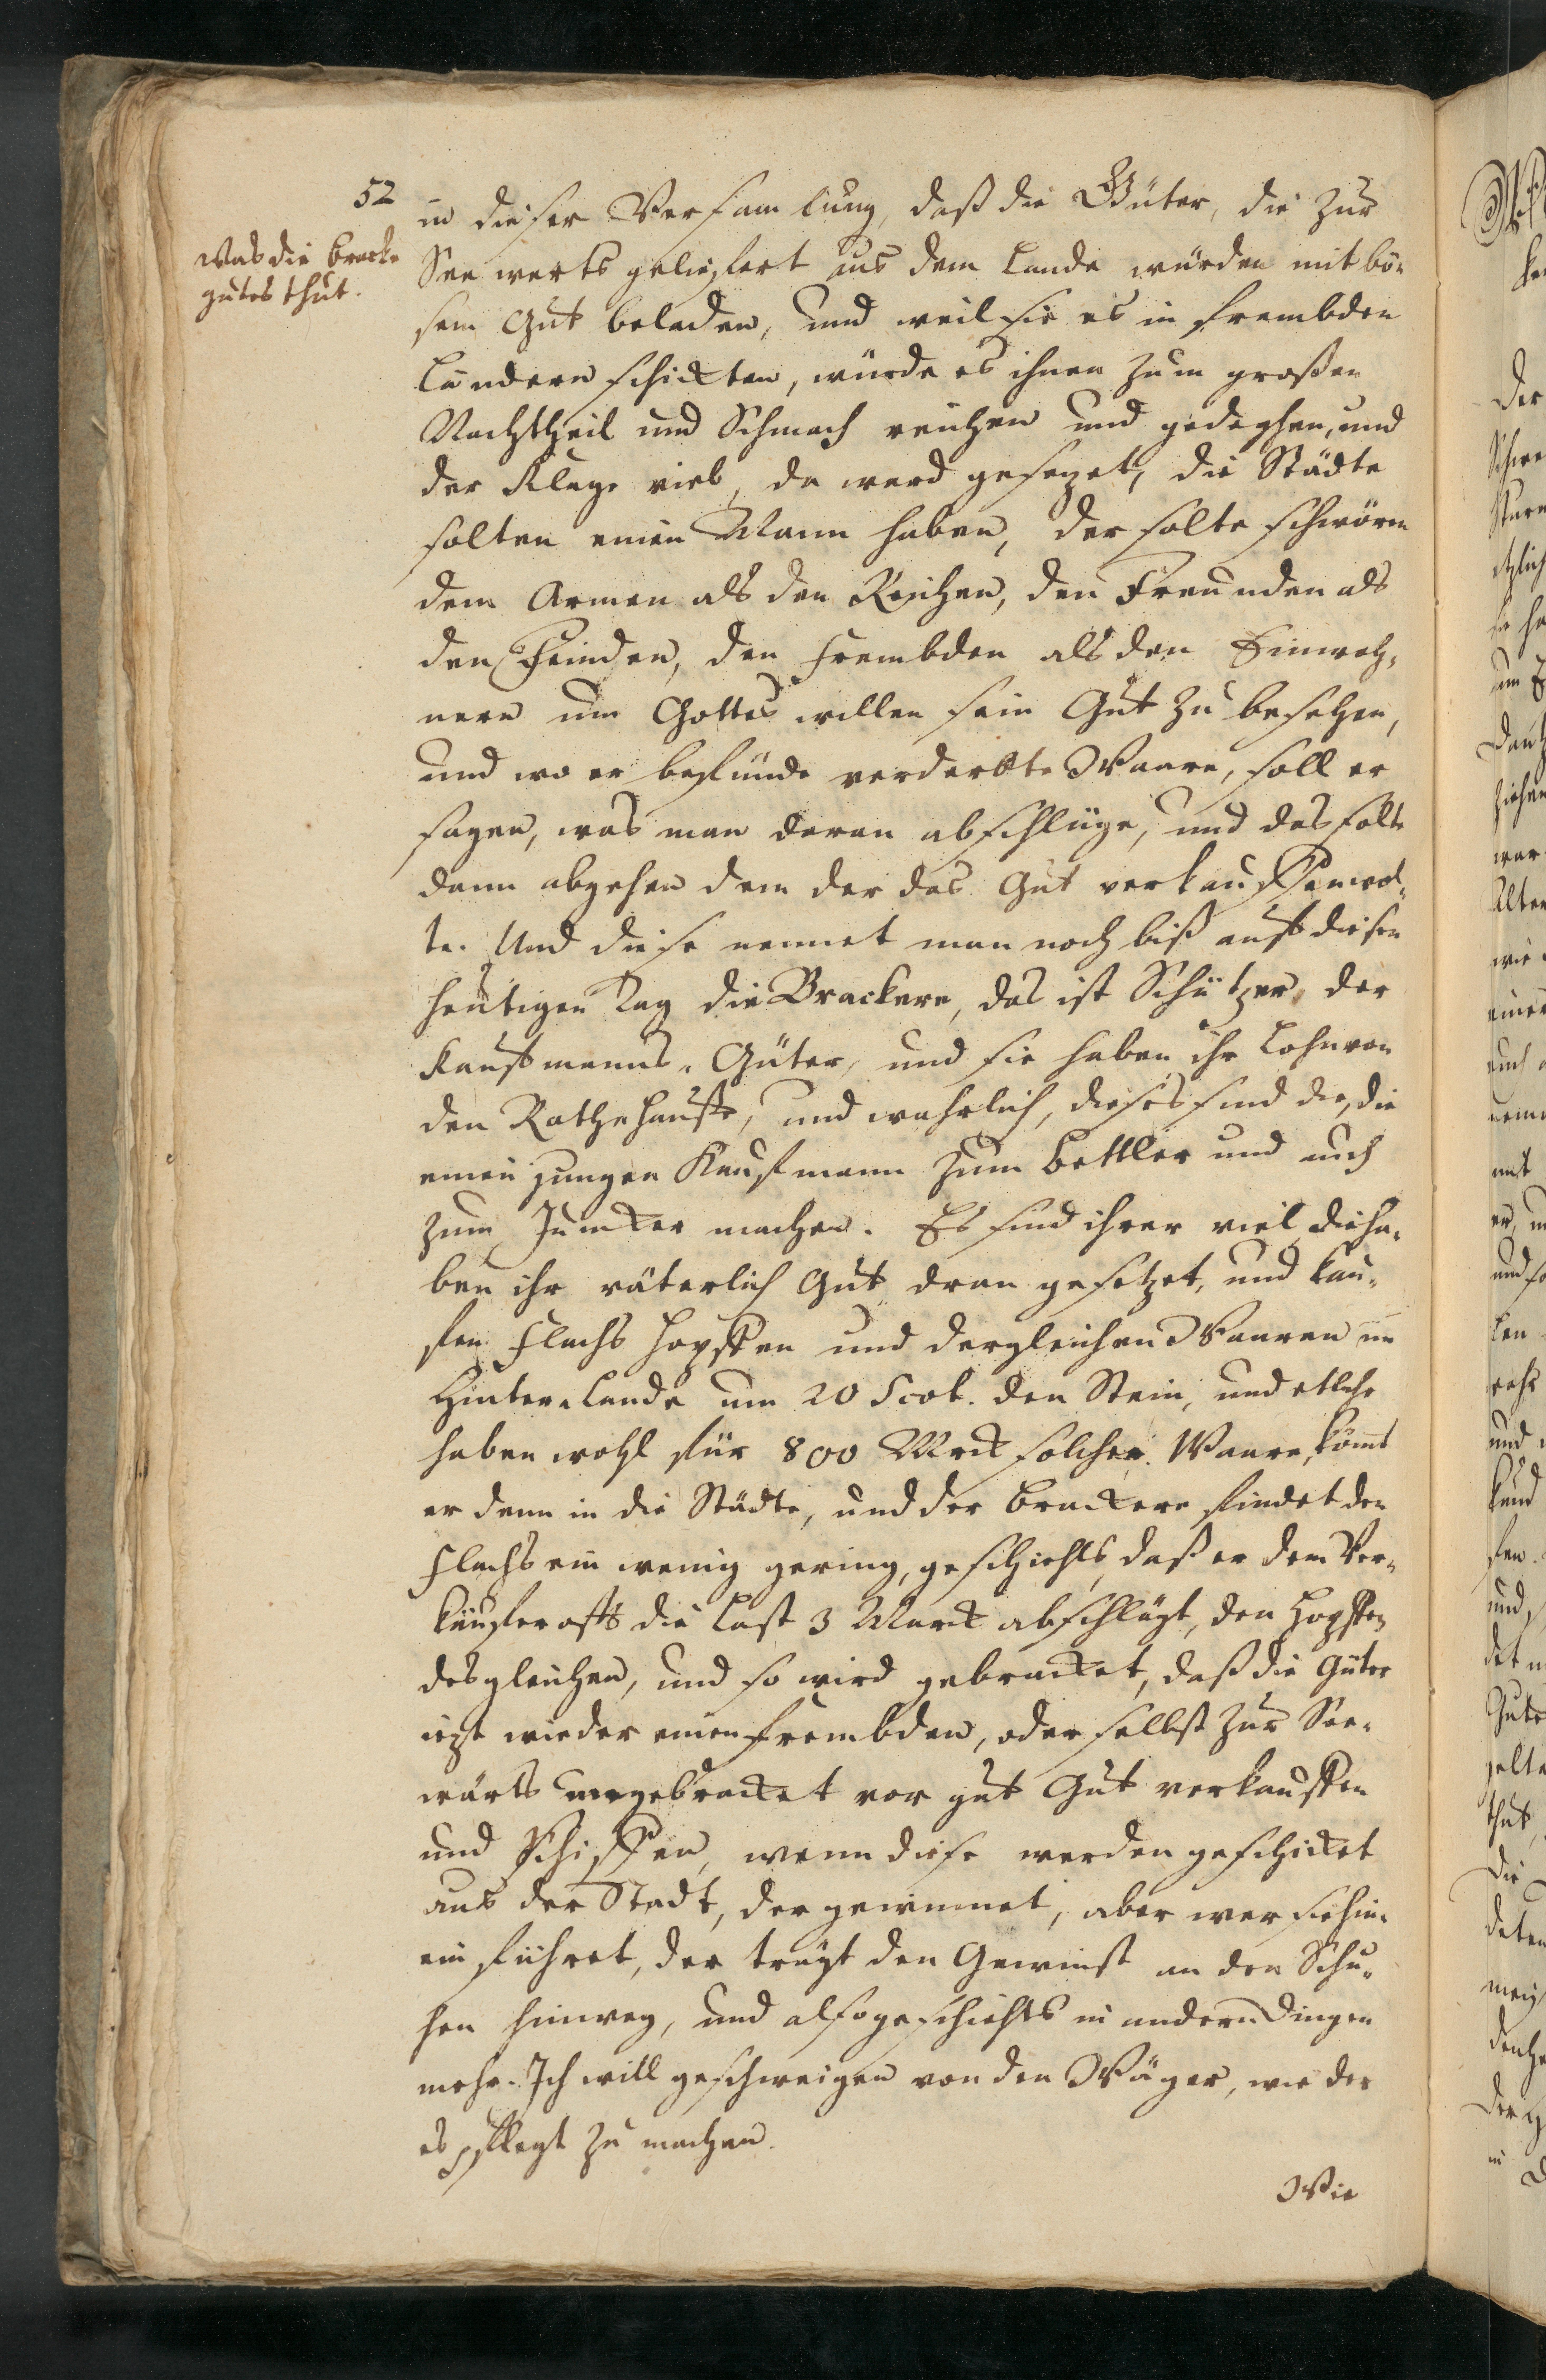 52
Was die Bracke
gutes thut.
in dieser Versamlung, daß die Güter, die zur
See werts geliefert aus dem Lande würden mit bö-
sem Gut beladen, und weil sie es in frembden
Ländern schickten, würde es ihnen zum großen
Nachtheil und Schmach reichen und gedeyhen, und
der Klage viel, da ward gesezet, die Städte
solten einen Mann haben, der solte schwören
dem Armen als den Reichen, den Freunden als
den Feinden, den Frembden als den Einwoh-
nern um Gottes willen sein Gut zu besehen,
und wo er befünde verderbte Waare, soll er
sagen, was man daran abschlüge, und das solte
dann abgehen dem der das Gut verkauffen wol-
te. Und diese nennet man noch biß auff diesen
heutigen Tag die Brackere, das ist Schützer der
Kauffmanns-Güter, und sie haben ihr Lohn von
den Rathhause, und wahrlich, dieses sind die, die
einen jungen Kaufmann zum Bettler und auch
zum Juncker machen. Es sind ihrer viel, die ha-
ben ihr väterlich Gut dran gesetzet, und kau-
fen Flachs Hopffen und dergleichen Waaren im
Hinter-Lande um 20 Scot. den Stein, und etliche
haben wohl für 800 Marck solcher Waare, kömt
er denn in die Städte, und der Brackere findet den
Flachs ein wenig gering, geschiehts, daß er dem Ver-
käufer offt die Last 3 Marck abschlägt, den Hopffen
desgleichen, und so wird gebracket, daß die Güter
iezt wieder einen frembden, oder selbst zur See-
wärts ungebracket vor gut Gut verkauffen
und schiffen, wenn diese werden geschicket
aus der Stadt, der gewinnet, aber wer sie hin-
ein führet, der trägt den Gewinst an den Schu-
hen hinweg, und also geschiehts in andern Dingen
mehr. Ich will geschweigen von den Wäger, wie der
es pflegt zu machen.
Wie